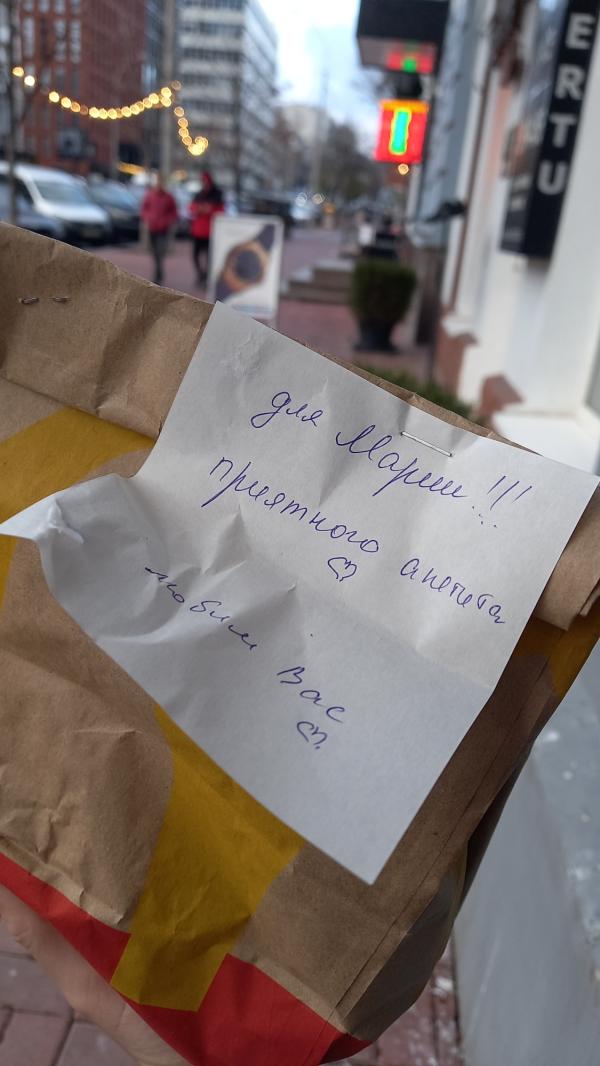 ERTU
для Марии!!!
приятного аппетита
♡
любим Вас
♡